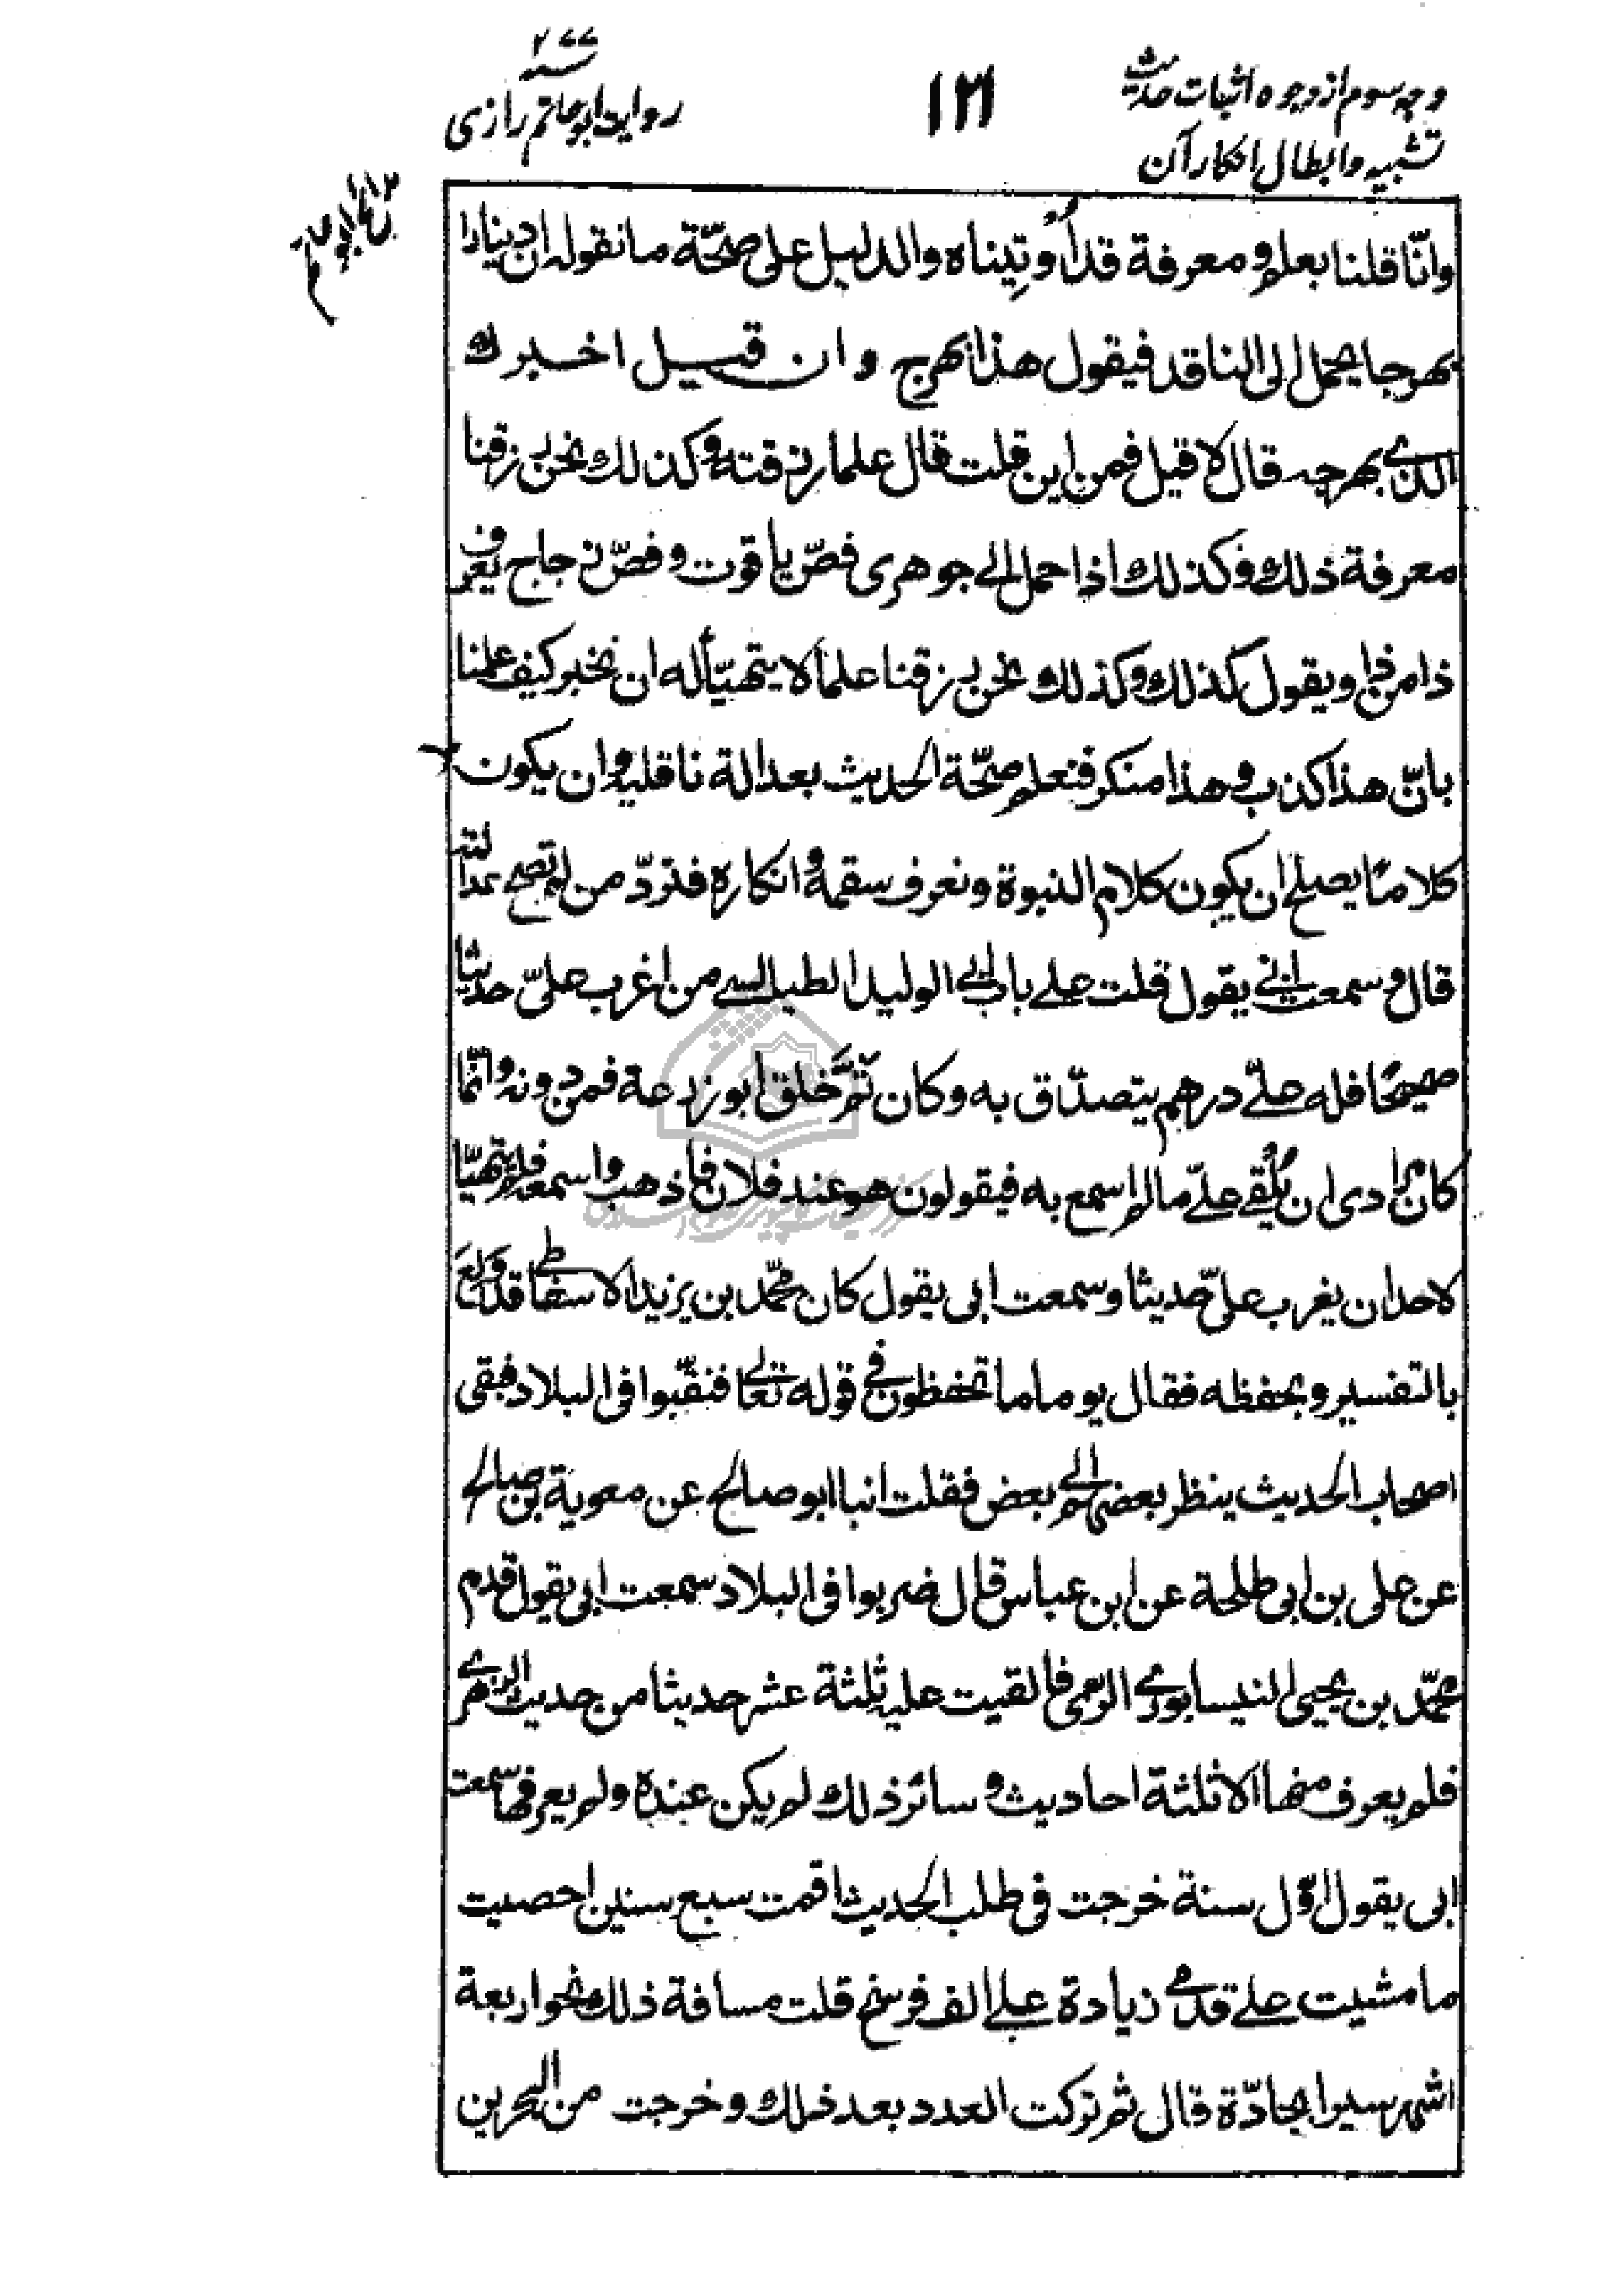 وجه سوم از وجوه اثبات حدیث
تشبیه و ابطال انکار آن
۱۲۱
۲۷۷
سنه
روایت ابو حاتم رازی
وانّا قلنا بعلم ومعرفة قد أُوتِیناه والدلیل علی صحّة ما نقوله ان دینارا
بهرجا یحمل الی الناقد فیقول هذا بهرج وان قیل اخبرك
الذی بهرجه قال لا قیل فمن این قلت قال علما رزقته وکذلك نحن رزقنا
معرفة ذلك وکذلك اذا حمل الی جوهری فصّ یاقوت وفصّ زجاج یعرف
ذا من ذا ویقول کذلك وکذلك نحن رزقنا علما لا یتهیّأ له ان نخبر کیف علمنا
بانّ هذا کذب وهذا منکر فنعلم صحّة الحدیث بعدالة ناقلیه وان یکون
کلامًا یصلح ان یکون کلام النبوة ونعرف سقمه وانکاره فتردّ من لم تصح عدالته
قال وسمعت ابی یقول قلت علی باب ابی الولید الطیالسی من اغرب علیّ حدیثا
صحیحًا فله علیّ درهم یتصدّق به وکان ثَمَّ خلق ابو زرعة فمن دونه وانّما
کان مرادی ان یُلقی علیّ ما لم اسمع به فیقولون هو عند فلان فاذهب واسمعه فلم یتهیّا
لاحد ان یغرب علیّ حدیثا وسمعت ابی یقول کان محمّد بن یزید الاسفاطی قد وَلِعَ
بالتفسیر وبحفظه فقال یوما ما تحفظون فی قوله تعالی فنقّبوا فی البلاد فبقی
اصحاب الحدیث ینظر بعضهم الی بعض فقلت انبا ابو صالح عن معویة بن صالح
عن علی بن ابی طلحة عن ابن عباس قال ضربوا فی البلاد سمعت ابی یقول قدم
محمّد بن یحیی النیسابوری الری فالقیت علیه ثلثة عشر حدیثا من حدیث الزهری
فلم یعرف منها الا ثلثة احادیث وسائر ذلك لم یکن عنده ولم یعرفها سمعت
ابی یقول اوّل سنة خرجت فی طلب الحدیث اقمت سبع سنین احصیت
ما مشیت علی قدمی زیادة علی الف فرسخ قلت مسافة ذلك نحو اربعة
اشهر سیر الجادّة قال ثم ترکت العدد بعد ذلك وخرجت من البحرین